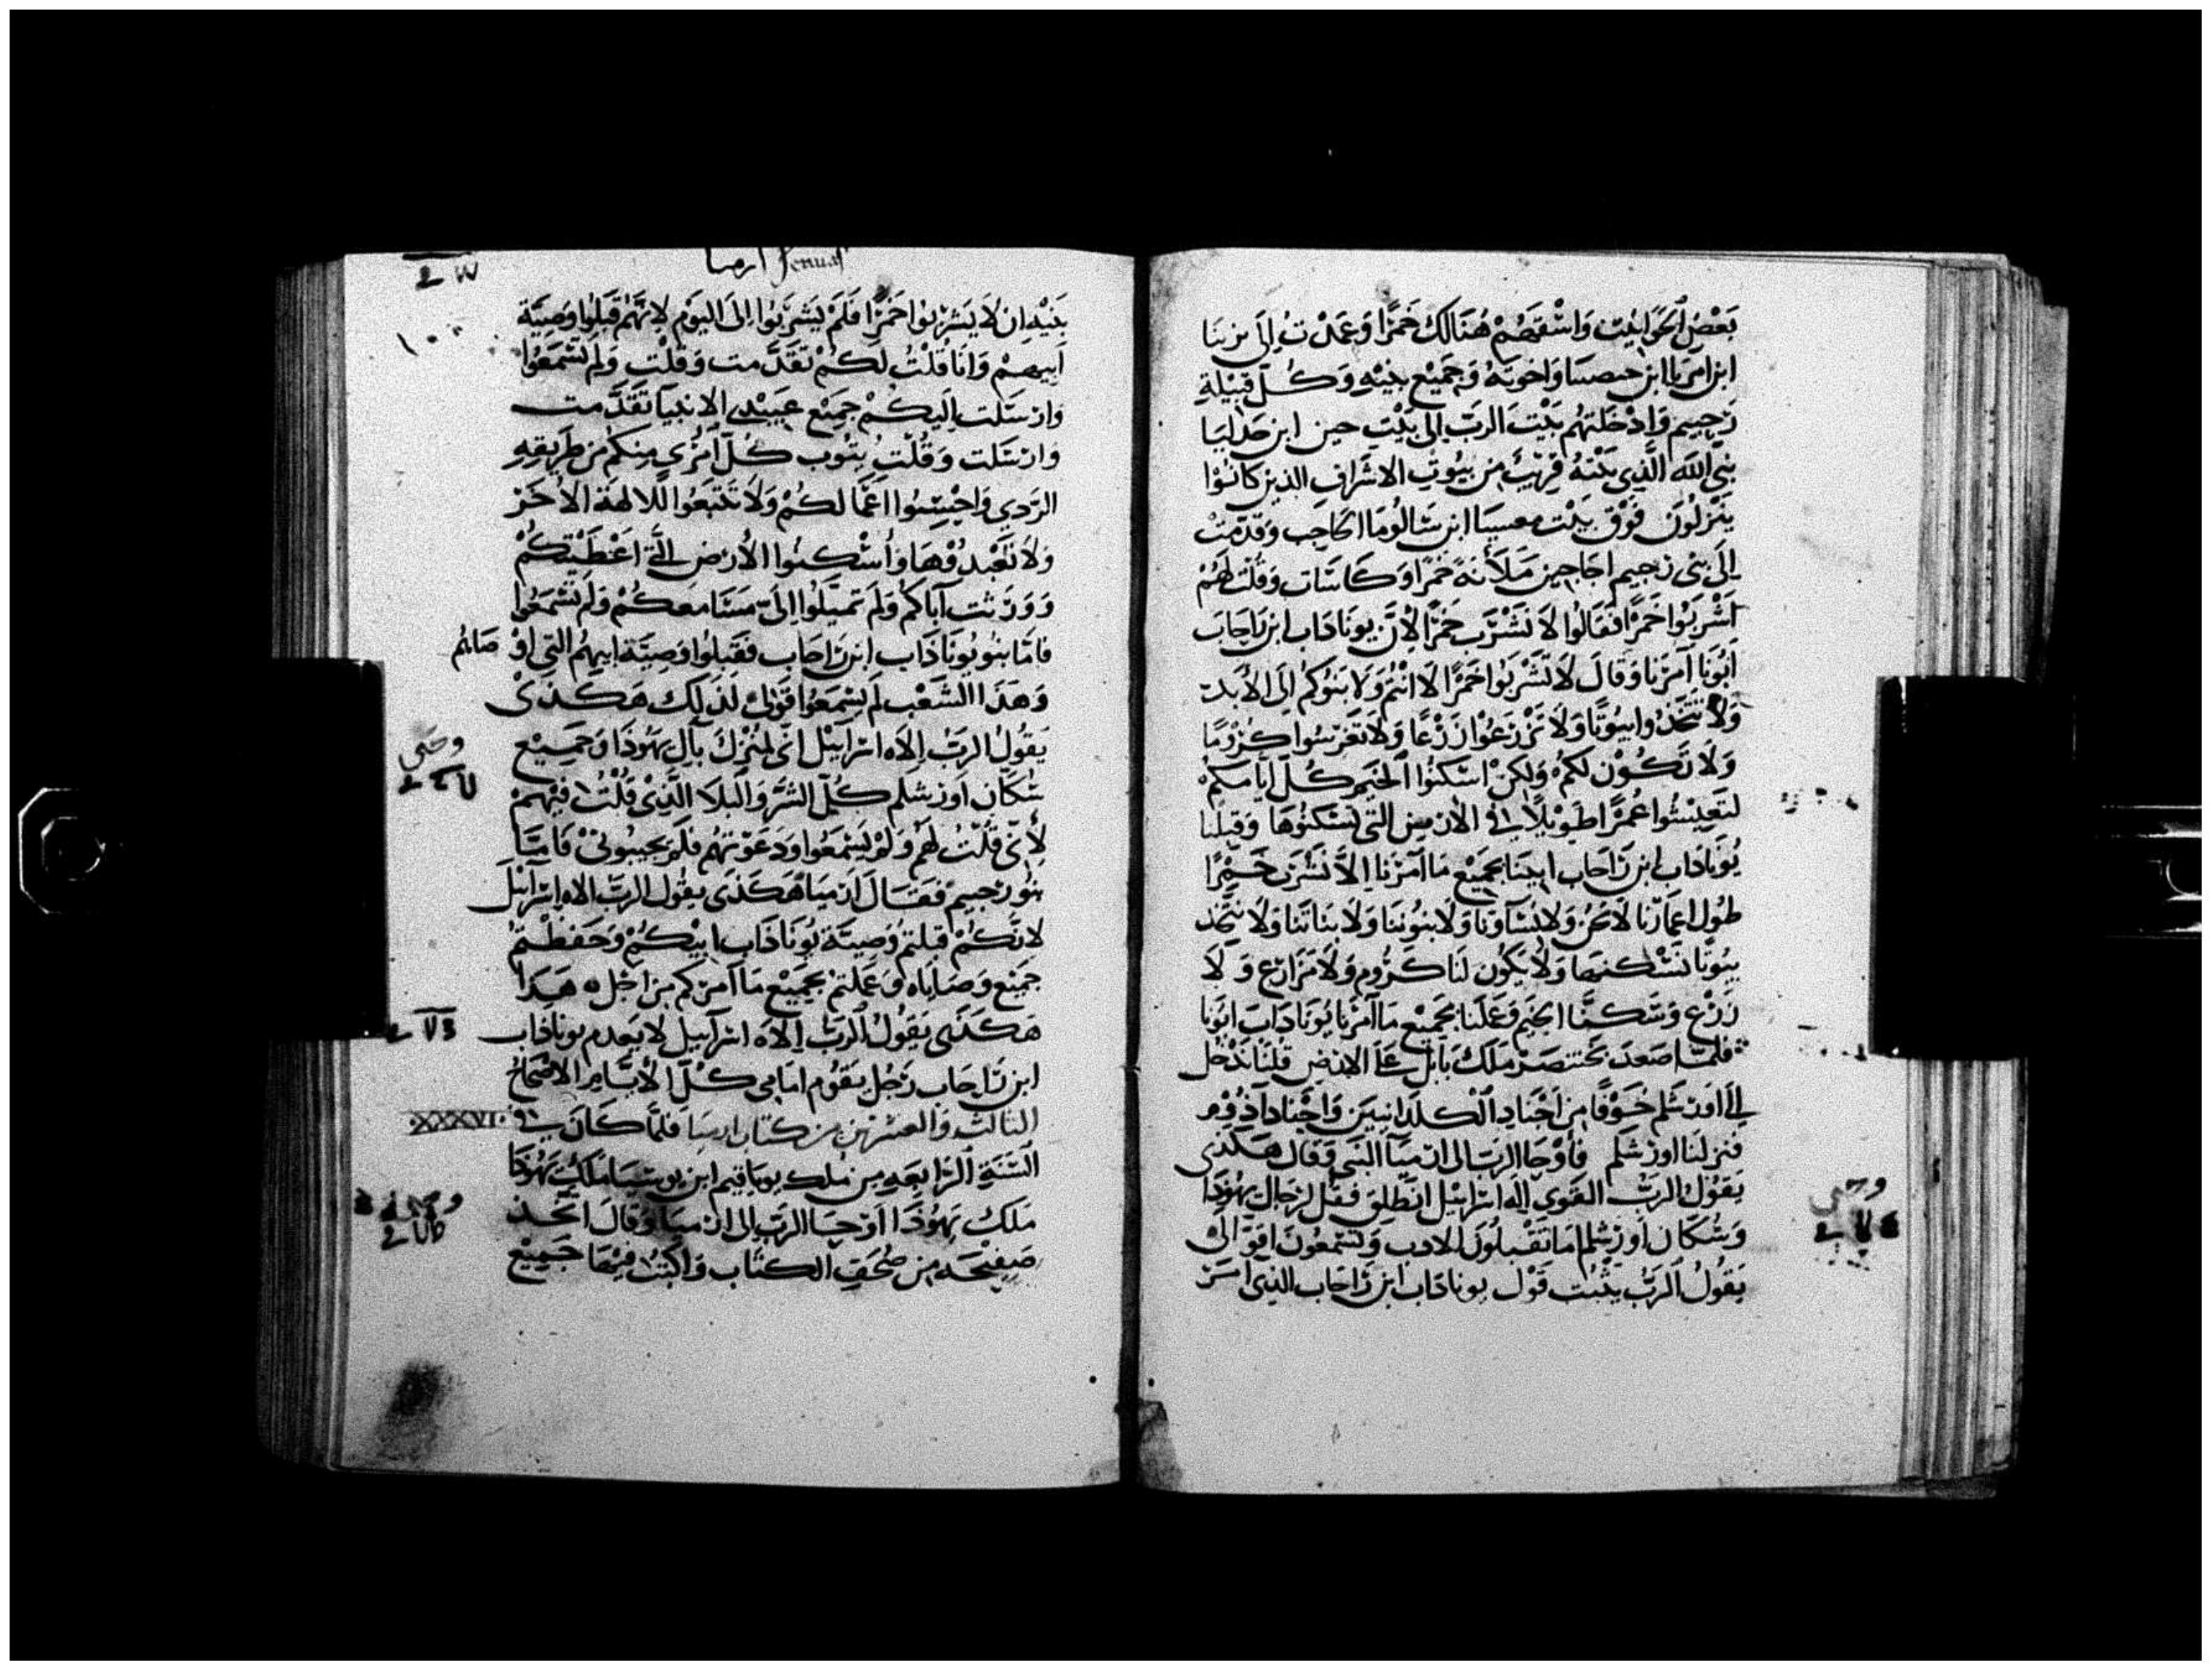 بَعْضَ الحَوَانيت وَاسْقيهُمْ هُنَالَكَ خَمرًا وَعَمدْتُ اِلَى يزينَا
ابن اِمَريَا ابن حبصنيا وَاخوتهُ وَجَميْع بنيْهِ وَكُلّ قَبيْلةِ
رَجيم وَادْخَلتهُم بَيْتَ الربّ الى بَيْت حين ابن حَدَليَا
نبىّ الله الَّذِي بَيْتهُ قريْبٌ من بُيُوتِ الاشرَاف الذين كانُوا
يَنْزلُون فَوْق بَيْت معسيَا ابن سَالُومَا الحَاجب وَقدّمتْ
اِلَى بَنى رَجيم اجَاجين مَلأنَةً خَمرًا وَكَاسَات وَقُلْت لَهُمْ
اَشْرَبُوا خَمرًا فقَالُوا لاَ نَشْرَب خَمرًا لأنّ يونَادَاب ابن رَاجَاب
اَبُونَا اَمرَنا وَقَالَ لاَ تَشْرَبُوا خَمرًا لا انْتُم وَلاَ بَنُوكُم اِلَى الاَبَد
وَلاَ تتّخَذُوا بُيُوتًا وَلاَ تَزْرَعُوا زَرْعًا وَلاَ تَغرسُوا كُرُومًا
وَلاَ تَكُوْن لكُمْ وَلكِنْ اسْكنُوا الخيَم كُلّ اَيَّامكُمْ
لتَعِيْشُوا عُمرًا طَوِيْلاً فى الاَرض التى تَسْكنُوهَا وَقبلْنا
يُونَادَاب ابن رَاحَاب ابينَا بجَميْع مَا اَمرَنَا اِلاَّ نَشْرَبَ خَمْرًا
طُول اعمَارنا لاَ نحْنُ وَلاَ نسَآؤنا وَلاَ بنُوننا وَلاَ بناتَنا وَلاَ نتّخَذ
بُيُوتًا نَسْكنهَا وَلاَ يَكُون لَنا كرُوم وَلاَ مَزَارع وَلاَ
زَرْع وَسَكنَّا الخيَم وَعَملنَا بجَميْع مَا اَمرَنَا يُونَادَابَ ابُونَا
فَلمّا صَعدَ بختنصرْ مَلكُ بَابل عَلَى الارض قلْنَا نَدْخُل
اِلَى اَورشَلم خَوْفًا من اَجْناد الكلدَانيين وَاَجْناد اَدُوْم
فنزلنَا اورشَلم فاَوْحَا الربّ الى ارميَآ النَبى وَقَالَ هكَذى
يَقُوْلُ الربّ القَوى اِلٰه اسْرَآئيل انْطلق فقُل لرجَال يَهُوذَا
وَسُكَان اَورشَلم اَمَا تَقْبلُونَ الادب وَتَسْمعُون اقوَالى
يَقُولُ الرَبّ يثبت قَوْل يونادَاب ابن رَاحَاب الذى امَر
وحى
ارميا Jeremias
بَنيْهِ اِن لاَ يَشرَبُوا خَمرًا فَلَمْ يَشرَبُوا اِلى اليَوم لانَّهُم قَبلُوا وَصيَّةَ
اَبيهمْ وَانَا قُلْتُ لَكُمْ تقَدَّمت وَقُلْت وَلم تَسْمَعُوا
وَارسَلت اِلَيكُمْ جَميْع عَبيْدى الاَنبيَآ تَقَدَّمت
وَارسَلت وَقُلْت يَتُوب كُلّ اَمرُىٍ منكُم من طَريقهِ
الرَدِى وَاحْسنُوا اعْمَالكُمْ وَلاَ تَتْبَعُوا الاٰلهَة الاُخَر
وَلاَ تَعْبدُوْهَا وَاُسْكنُوا الاَرض الَّتى اعْطَيْتكُمْ
وَوَرثت آبَاكُم وَلَم تَميْلُوا اِلىَّ مَسَامعكُمْ وَلَم تَسْمَعُوا
فامَّا بنُو يُونَادَاب ابن رَاحَاب فقَبلُوا وَصيَّةَ ابيهُم التى اَوْصَاهُم
وَهَذَا الشَعْب لَم يَسْمَعُوا قَوْلى لذَلكَ هَكَذى
يَقُولُ الرَبّ اِلاَه اسْرَآئيْل انّى لمُنْزل بآل يَهُوذَا وَجَميْع
سُكَان اَورشَلم كُلّ الشَرّ وَالبَلاَ الَّذِى قُلْتُ فيْهمْ
لأَنّى قُلْتُ لَهُم وَلَمْ يَسْمَعُوا وَدَعَوتهُم فلَم يجيبُونى فَامّا
بنُو رَجيم فقَال اَرميَا هَكَذى يقُول الرَبّ الاه اسْرَآئيل
لانّكُمْ قبلتمْ وَصيّة يُونَادَاب ابيْكُمْ وَحَفظتمْ
جَميْع وَصَايَاه وَعَملتمْ بجَميْع مَا اَمركُم من اَجْل هَذَا
هَكَذَى يَقُولُ الرَبّ اِلاَه اسْرَآئيل لاَ يَعدم يونَادَاب
ابن رَاحَاب رَجُل يقُوم امَامى كُلّ الأَيَّام الاصْحَاحُ
الثالث وَالعشرين من كتَاب ارميَا فلمَّا كَانَ فى
XXXVI.
السّنَة الرّابعَةِ من مُلك يويَاقيم ابن يوشيَا مَلكُ يَهُوذَا
مَلكُ يَهُوذَا اَوْحَا الرَبّ الى ارميَا وَقَالَ اتّخَذ
صَفيْحَه من صُحَف الكتَاب وَاَكْتُبْ فيْهَا جَميْع
وحى